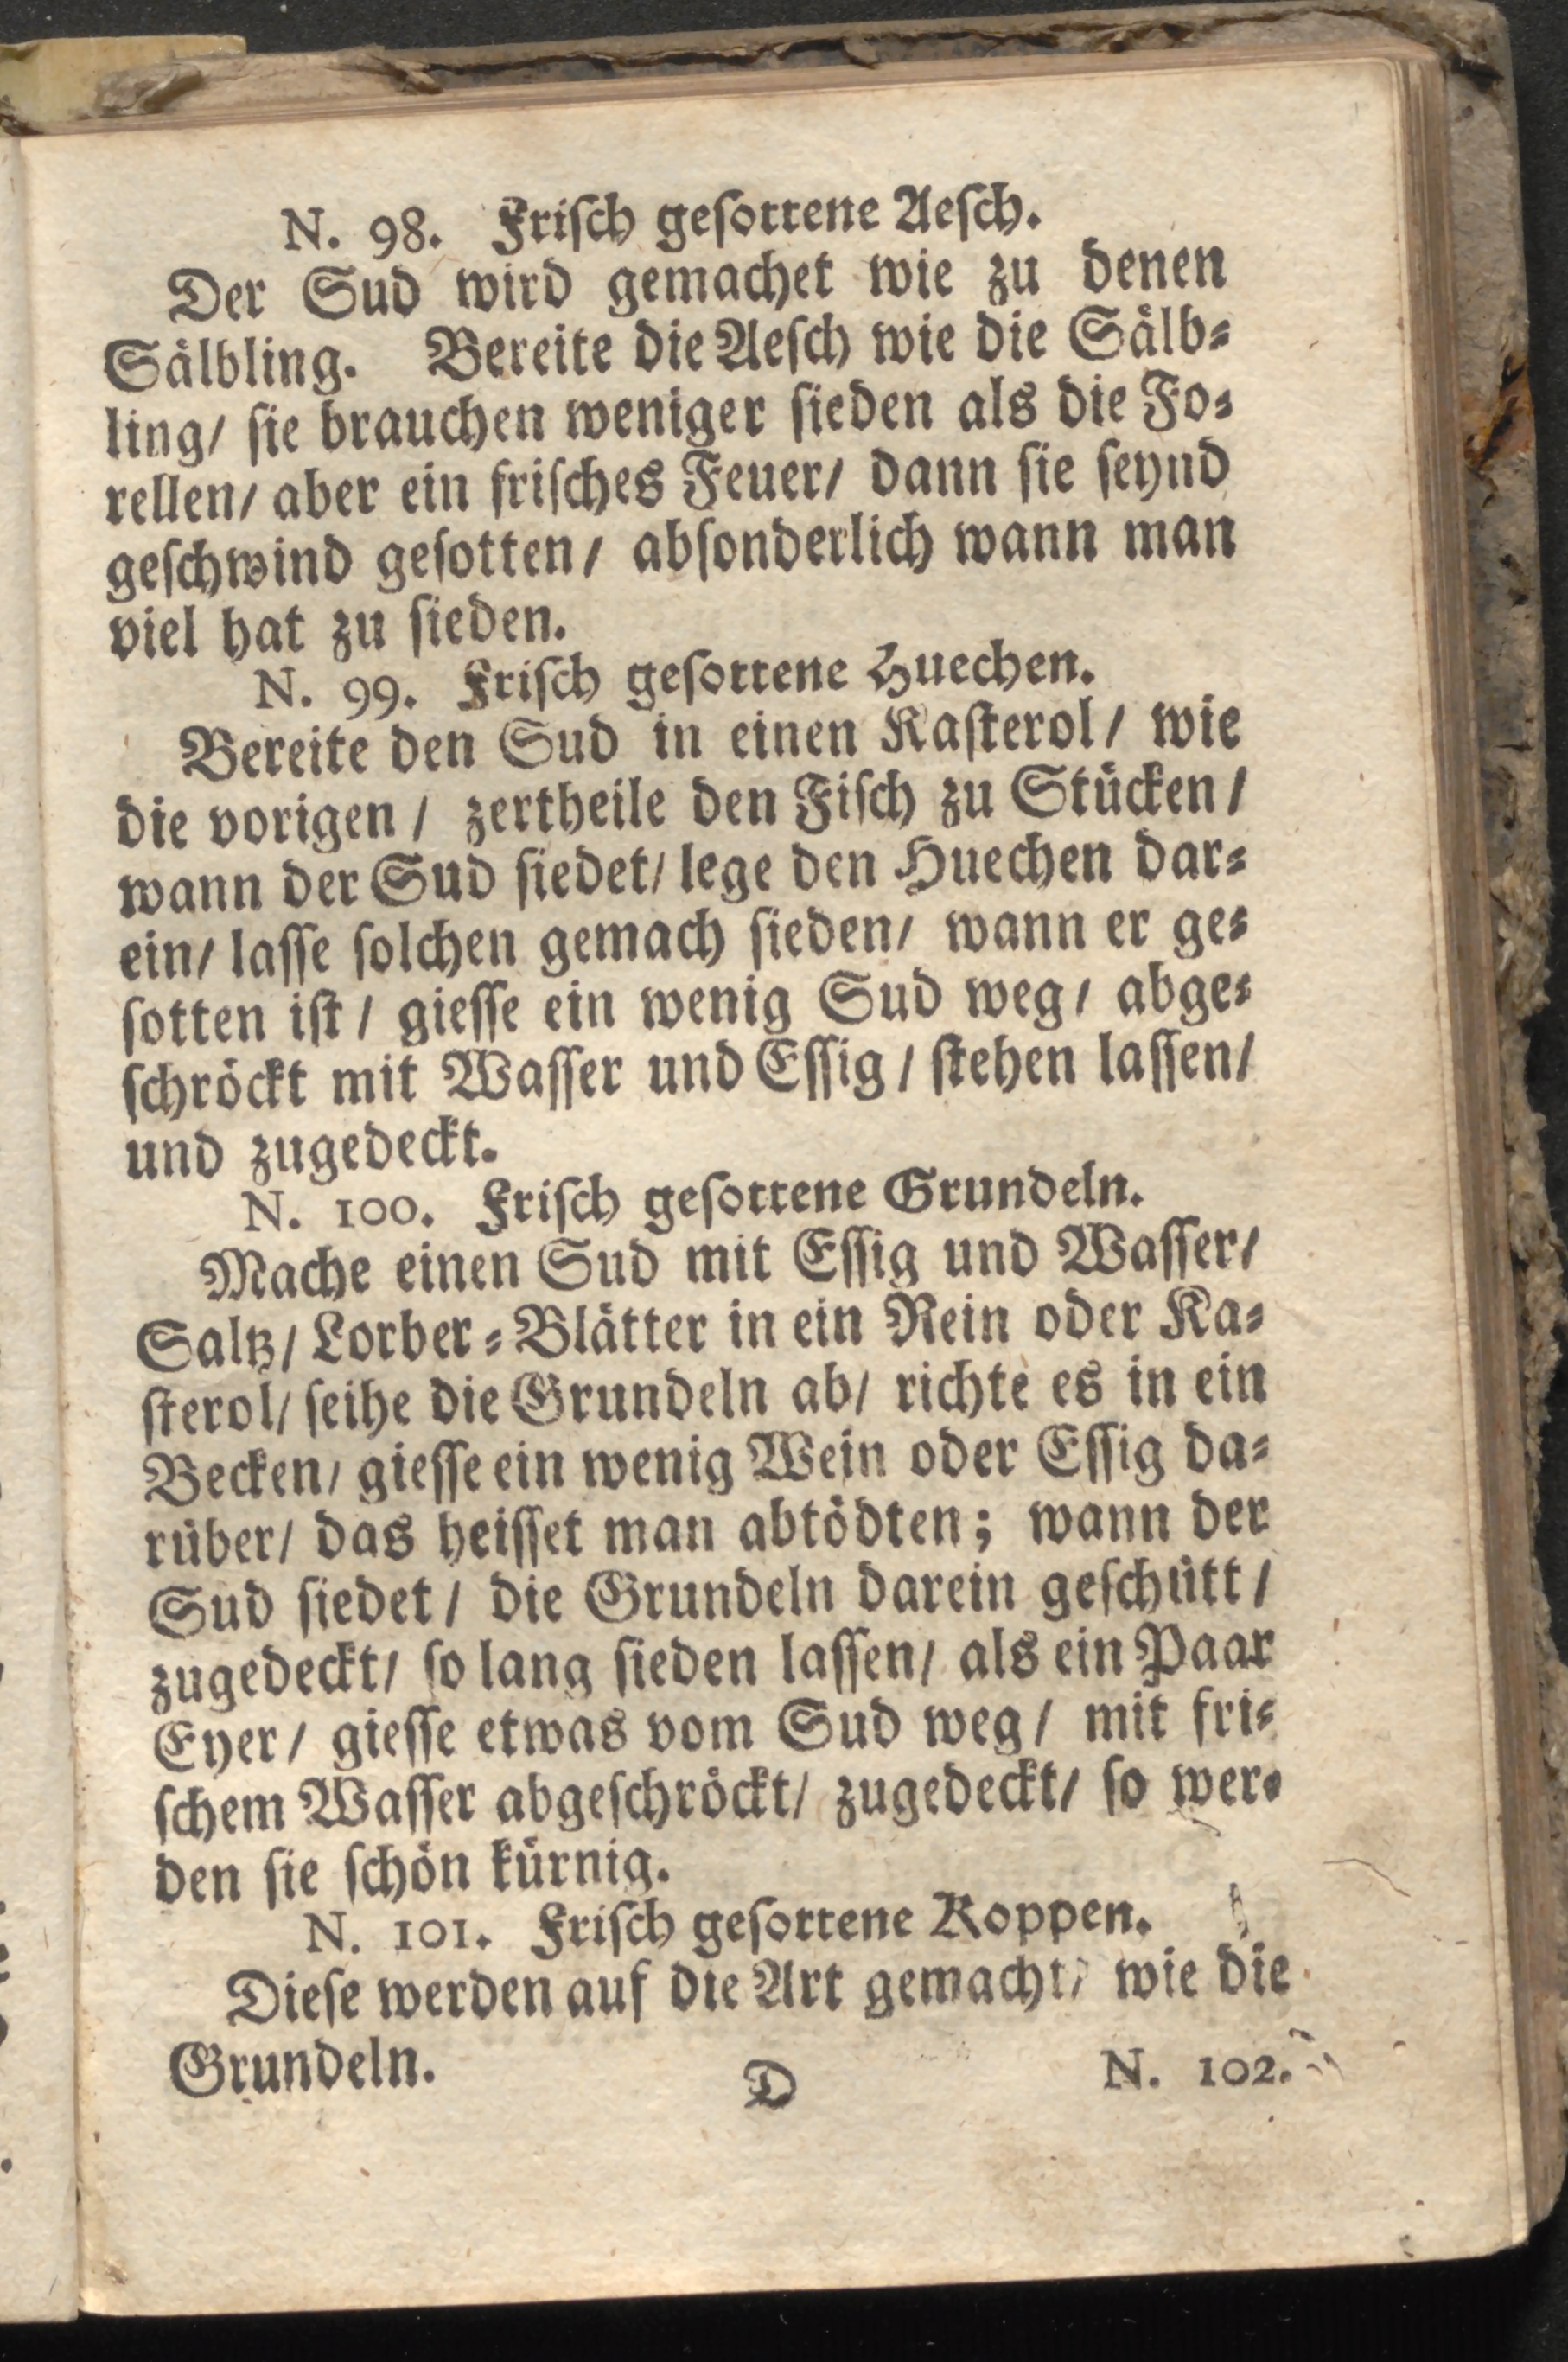 N. 98. Friſch geſottene Aeſch.
Der Sud wird gemachet wie zu denen
Sälbling. Bereite die Aeſch wie die Sälb⸗
ling/ ſie brauchen weniger ſieden als die Fo⸗
rellen/ aber ein friſches Feuer/ dann ſie ſeynd
geſchwind geſotten/ abſonderlich wann man
viel hat zu ſieden.
N. 99. Friſch geſottene Huechen.
Bereite den Sud in einen Kaſterol/ wie
die vorigen/ zertheile den Fiſch zu Stücken/
wann der Sud ſiedet/ lege den Huechen dar⸗
ein/ laſſe ſolchen gemach ſieden/ wann er ge⸗
ſotten iſt/ gieſſe ein wenig Sud weg/ abge⸗
ſchröckt mit Waſſer und Eſſig/ ſtehen laſſen/
und zugedeckt.
N. 100. Friſch geſottene Grundeln.
Mache einen Sud mit Eſſig und Waſſer/
Saltz/ Lorber⸗Blätter in ein Rein oder Ka⸗
ſterol/ ſeihe die Grundeln ab/ richte es in ein
Becken/ gieſſe ein wenig Wein oder Eſſig da⸗
rüber/ das heiſſet man abtödten; wann der
Sud ſiedet/ die Grundeln darein geſchütt/
zugedeckt/ ſo lang ſieden laſſen/ als ein Paar
Eyer/ gieſſe etwas vom Sud weg/ mit fri⸗
ſchem Waſſer abgeſchröckt/ zugedeckt/ ſo wer⸗
den ſie ſchön kürnig.
N. 101. Friſch geſottene Koppen.
Dieſe werden auf die Art gemacht/ wie die
Grundeln.
D N. 102.